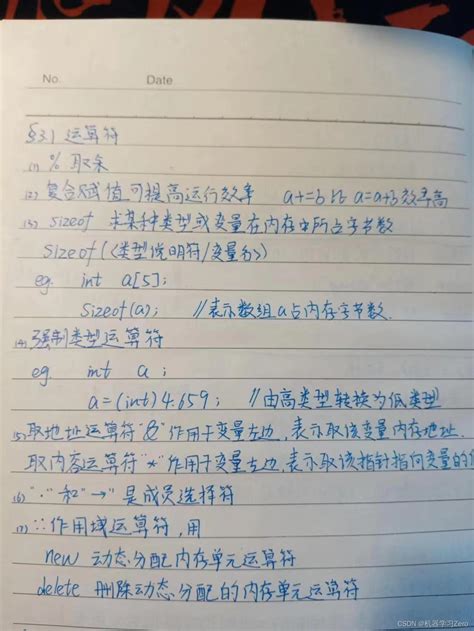 No. Date
§3.1 运算符
(1) % 取余
(2) 复合赋值可提高运行效率 a+=b比a=a+b效率高
(3) sizeof 求某种类型或变量在内存中所占字节数
sizeof(<类型说明符/变量名>)
eg. int a[5];
sizeof(a); //表示数组a占内存字节数
(4) 强制类型运算符
eg. int a;
a=(int)4.659; //由高类型转换为低类型
(5) 取地址运算符"&"作用于变量左边,表示取该变量内存地址.
取内容运算符"*"作用于变量左边,表示取该指针指向变量的
(6) "."和"→"是成员选择符
(7) ::作用域运算符,用
new 动态分配内存单元运算符
delete 删除动态分配的内存单元运算符
CSDN @机器学习Zero